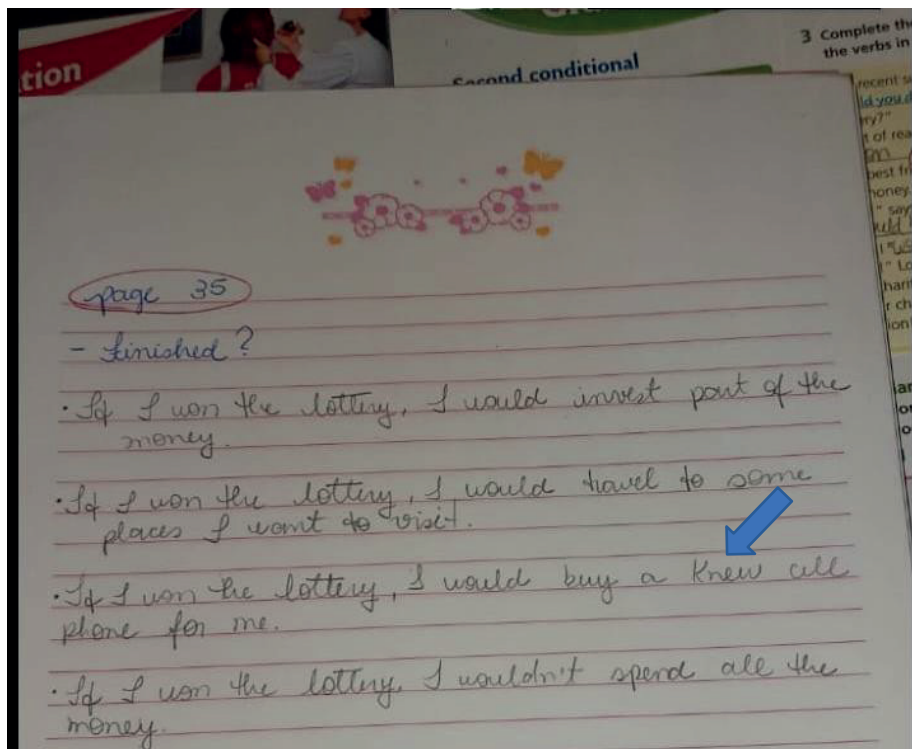 tion
Second conditional
3 Complete the
the verbs in
recent s
ld you d
ry?"
t of rea
best fri
honey.
" say
uld
" Lo
harit
r ch
ion
page 35
- Finished?
· If I won the lottery, I would invest part of the
money.
· If I won the lottery, I would travel to some
places I want to visit.
· If I won the lottery, I would buy a Knew cell
phone for me.
· If I won the lottery, I wouldn't spend all the
money.